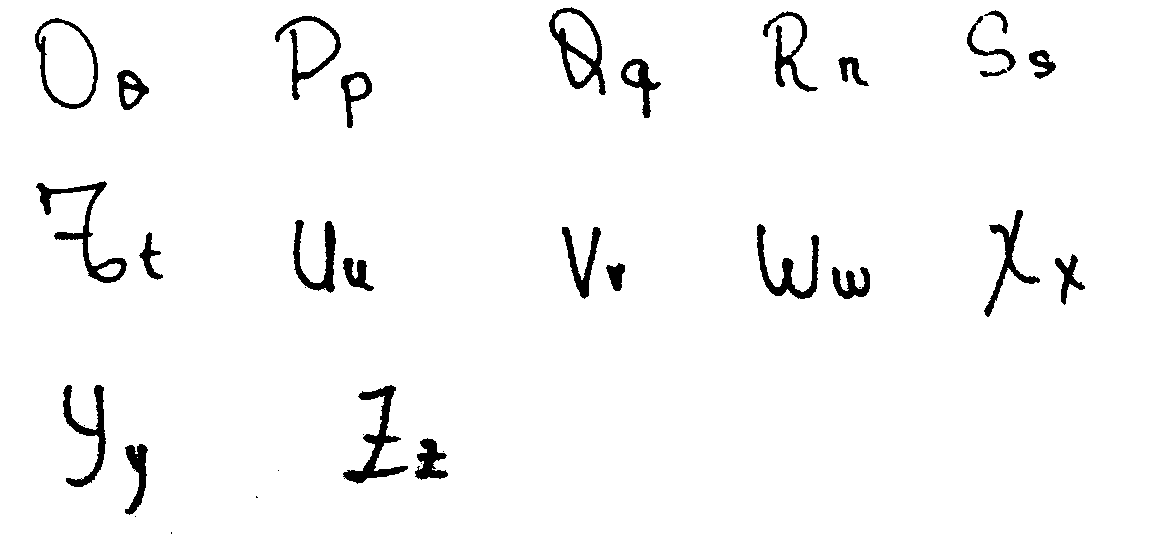 Oo Pp Qq Rr Ss
Tt Uu Vv Ww Xx
Yy Zz